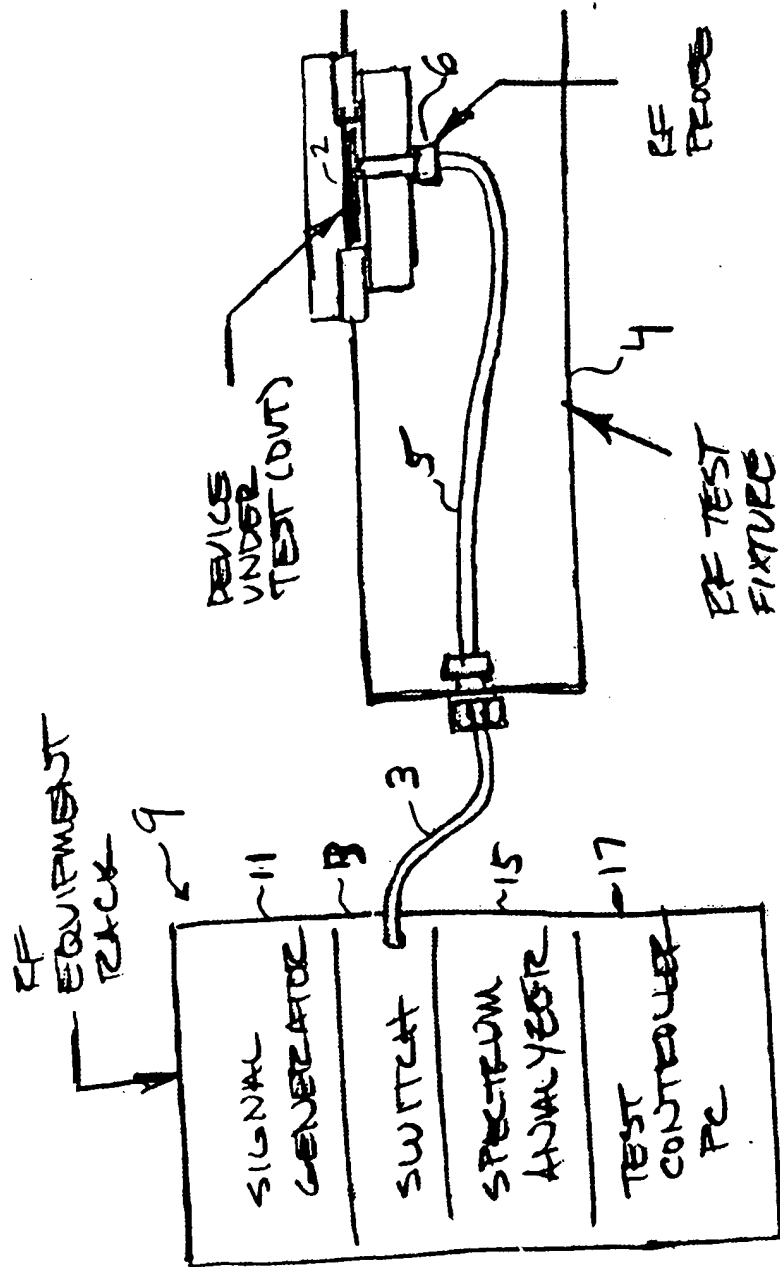 RF
EQUIPMENT
RACK
9
SIGNAL
GENERATOR
11
SWITCH
13
SPECTRUM
ANALYZER
15
TEST
CONTROLLER
PC
17
3
DEVICE
UNDER
TEST (DUT)
2
5
6
RF
PROBE
4
RF TEST
FIXTURE